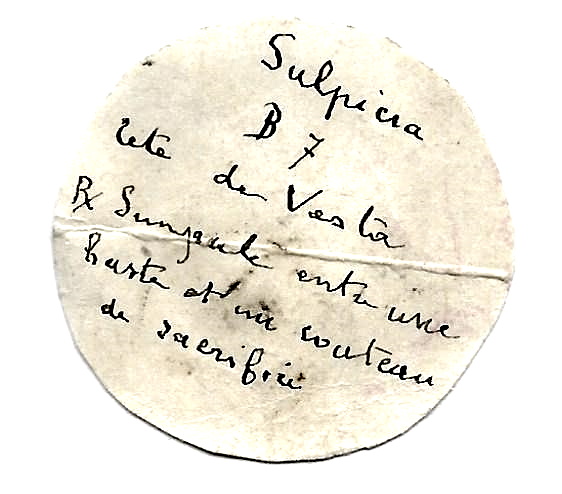 Sulpicia
B 7
tete de Vesta
R entre une
haste et un couteau
de sacrifice